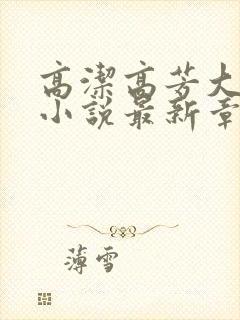 高潔高芳大
小說最新章
薄雪